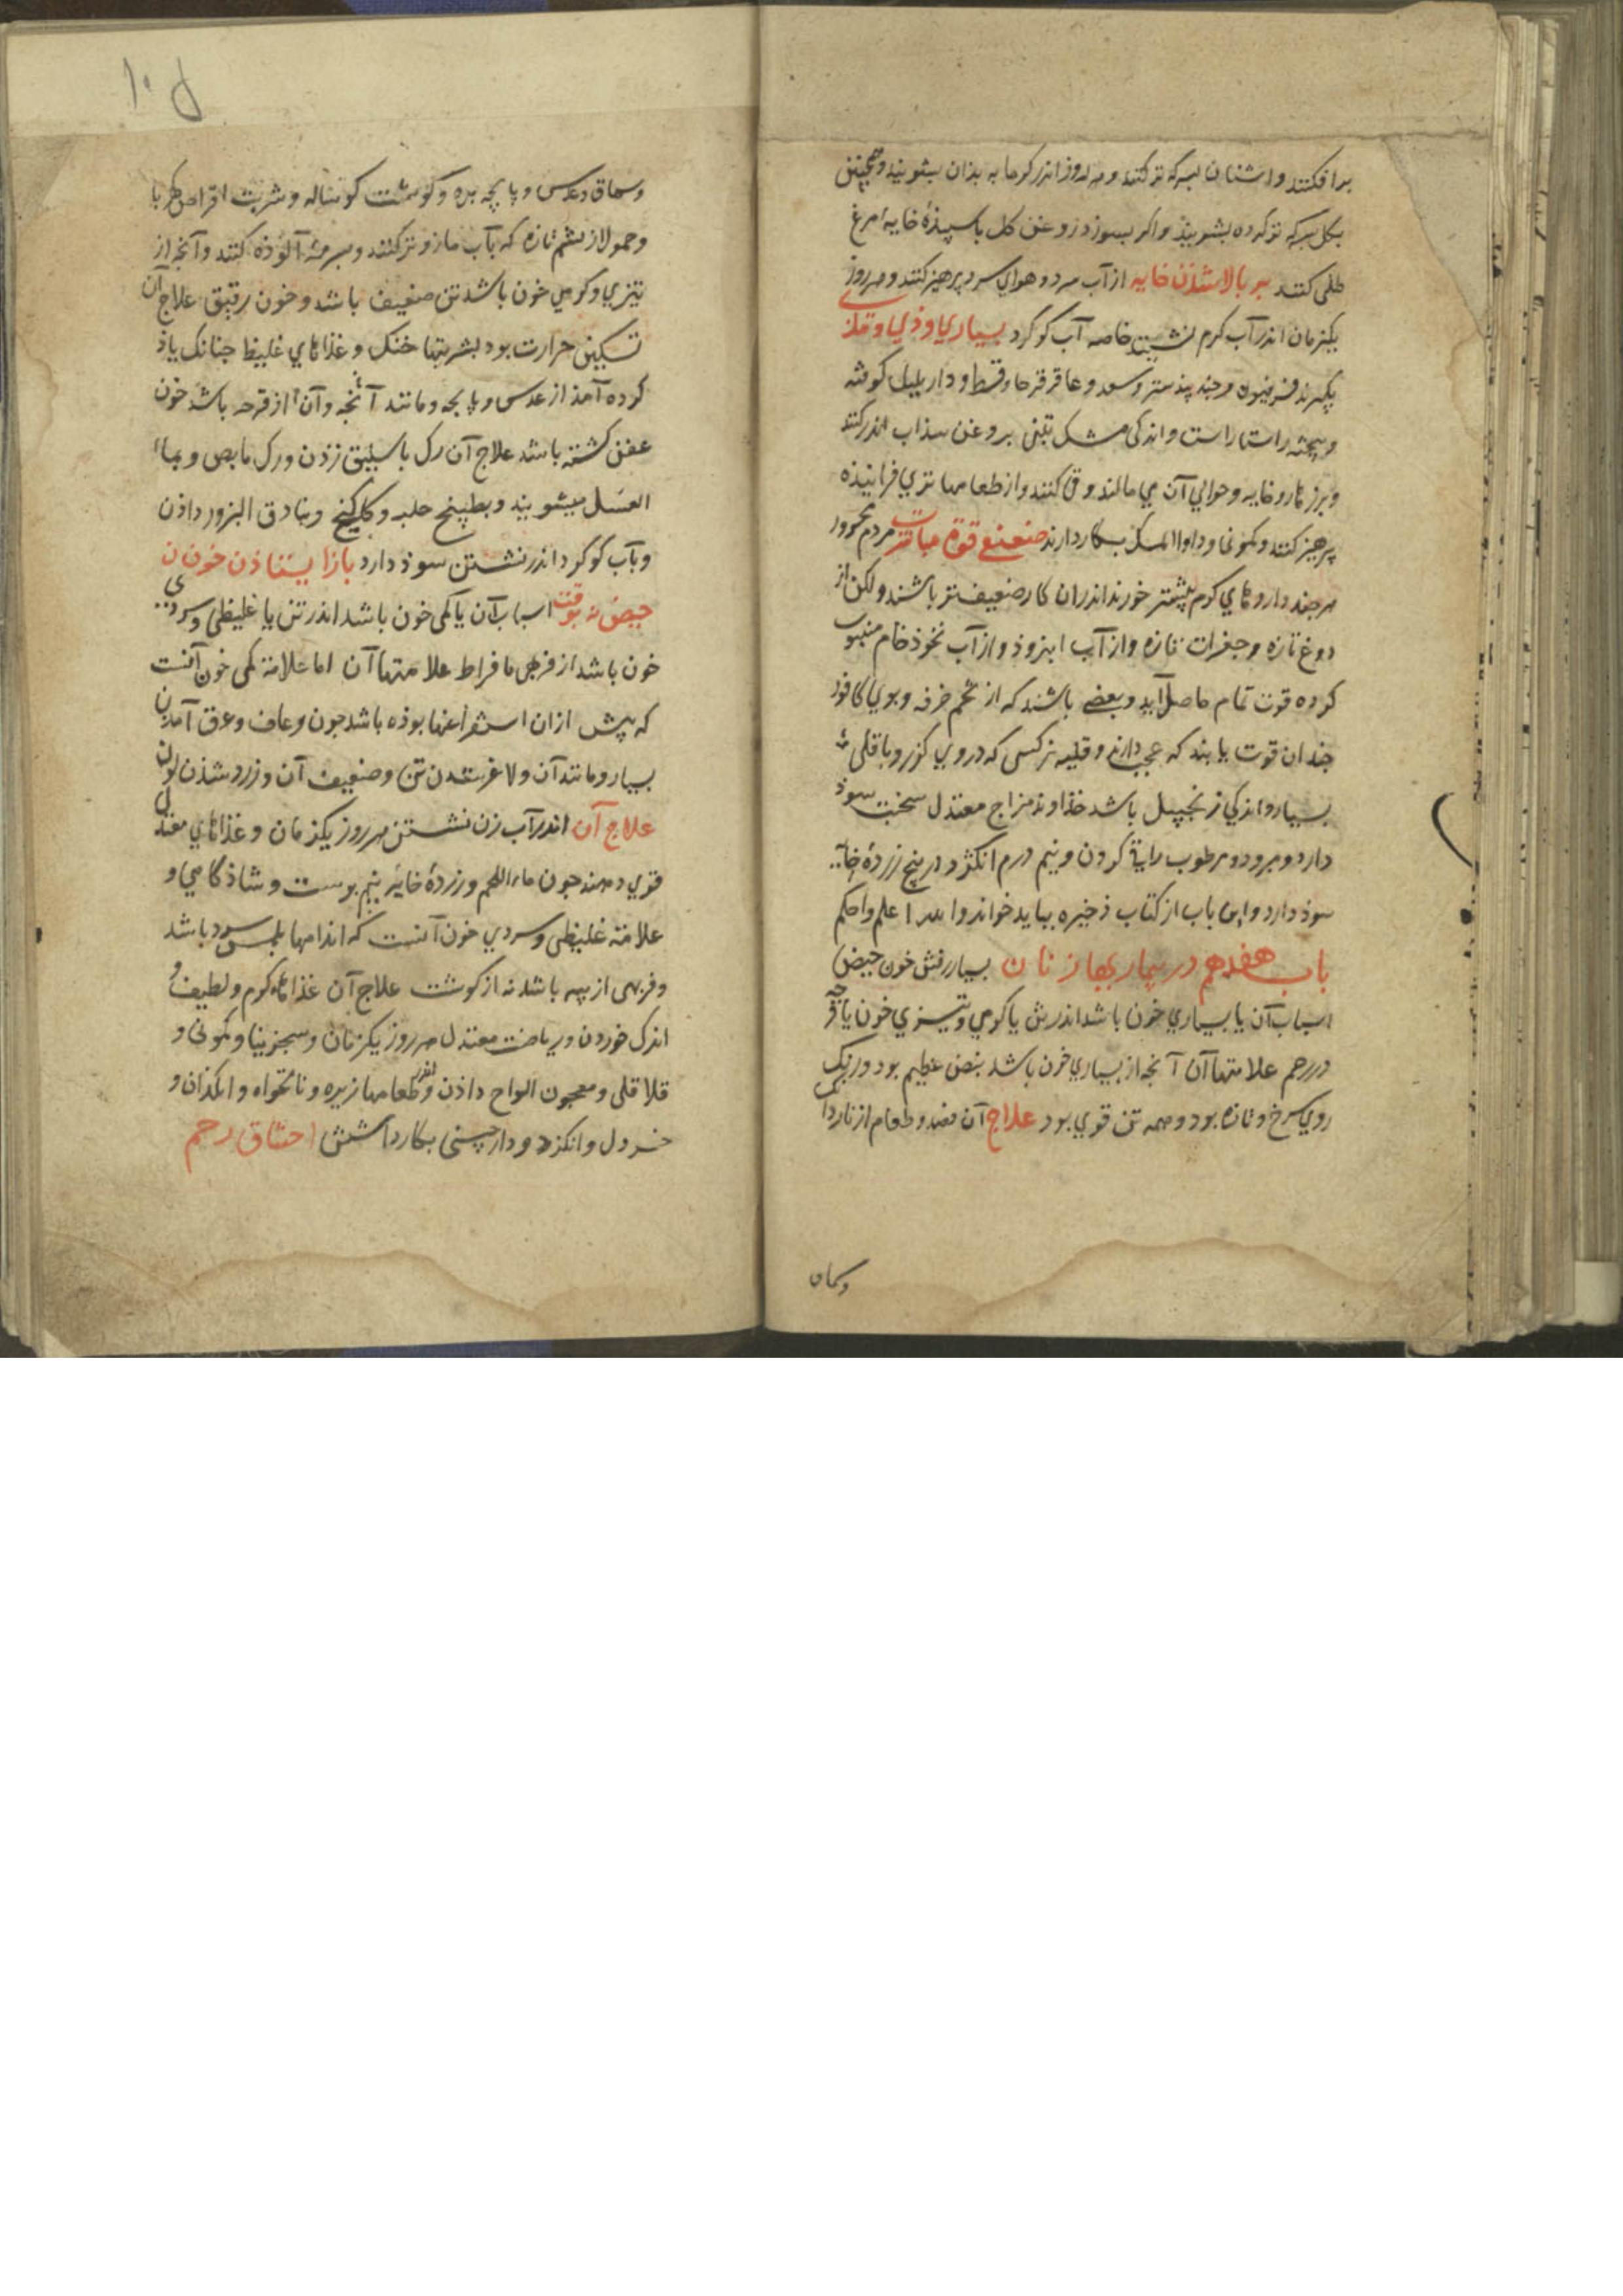 برافکنند و اشنان بسرکه تر کنند و هر روز اندر کرمابه بذان بشویند و همچنین
بکل سرکه تر کرده بشویند و اکر بسوزد روغن کل با سپیذۀ خایه مرغ
طلی کنند بر بالا شذن خایه از آب سرد و هوای سرد پرهیز کنند و هر روز
یکزمان اندر آب کرم نشینند خاصه آب کوکرد بسیاری وذی و مذی
بکیرند فرفیون و جند بیدستر و سعد و عاقرقرحا و قسط و دارپلپل کوفته
و بیخته راستاراست و اندکی مشک تبتی بروغن سذاب اندر کنند
و برزهار و خایه و حوالی آن می مالند و قی کنند و از طعامها تری فزاینده
پرهیز کنند و کمونی و دواء المسک بکار دارند ضعیفی قوة مباشرت مردم محرور
هر چند داروهای کرم بیشتر خورند اندران کار ضعیف تر باشند و لکن از
دوغ تازه و جغرات تازه و از آب ابزن و از آب نخود خام
کرده قوت تمام حاصل آید و بعضی باشند که از تخم خرفه و بوی کافور
جندان قوت یابند که عجب دارند و قلیه نرکسی که در وی کزر و باقلی
بسیار و اندکی زنجبیل باشد خذاوند مزاج معتدل سخت سوذ
دارد و مبرود و مرطوب را کردن و نیم درم انکزد در پنج زردۀ خایه
سوذ دارد و این باب از کتاب ذخیره بباید خواند والله اعلم و احکم
باب هفدهم در بیماریهاء زنان بسیار رفتن خون حیض
اسباب آن یا بسیاری خون باشد اندر تن یا کرمی و تیزی خون یا قرحه
در رحم علامتهاء آن آنجه از بسیاری خون باشد نبض عظیم بود و رنک
روی سرخ و تازه بود و همه تن قوی بود علاج آن فصد و طعام از ناردانک
وسماق
۱۰ل
و سماق و عدس و پایچه بره و کوشت کوساله و شربت اقراص کهربا
و حمول از پشم تازه که بآب مازو تر کنند و بسرمه آلوذه کنند و آنجه از
تیزی و کرمی خون باشد تن ضعیف باشد و خون رقیق علاج آن
تسکین حرارت بود بشربتها خنک و غذاهای غلیظ جنانک یاذ
کرده آمذ از عدس و پایجه و مانند آن و آنجه از قرحه باشد خون
عفن کشته باشد علاج آن رک باسلیق زدن و رک مابض و بماء
العسل میشویند و بطبیخ حلبه و کلنکبین و بنادق البزور داذن
و بآب کوکرد اندر نشستن سوذ دارد باز ایستاذن خون
حیض نه بوقت اسباب آن یا کمی خون باشد اندر تن یا غلیظی و سردی
خون باشد از فربهی بافراط علامتهاء آن اما علامة کمی خون آنست
که پیش ازان استفراغها بوذه باشد جون رعاف و عرق آمدن
بسیار و مانند آن و لاغر شدن تن و ضعیف آن و زرد شذن لون
علاج آن اندر آب زن نشستن هر روز یکزمان و غذاهای معتدل
قوی دهند جون ماء اللحم و زردۀ خایۀ نیم برشت و شاذکامی و
علامة غلیظی و سردی خون آنست که اندامها بلمس سرد باشد
و فربهی از پیه باشد نه از کوشت علاج آن غذاهاء کرم و لطیف و
اندک خوردن و ریاضت معتدل هر روز یکزمان و سجزینا و کمونی و
قلاقلی و معجون الواح داذن و اندر طعامها زیره و نانخواه و انکذان و
خردل و انکزد و دارچینی بکار داشتن اختناق رحم